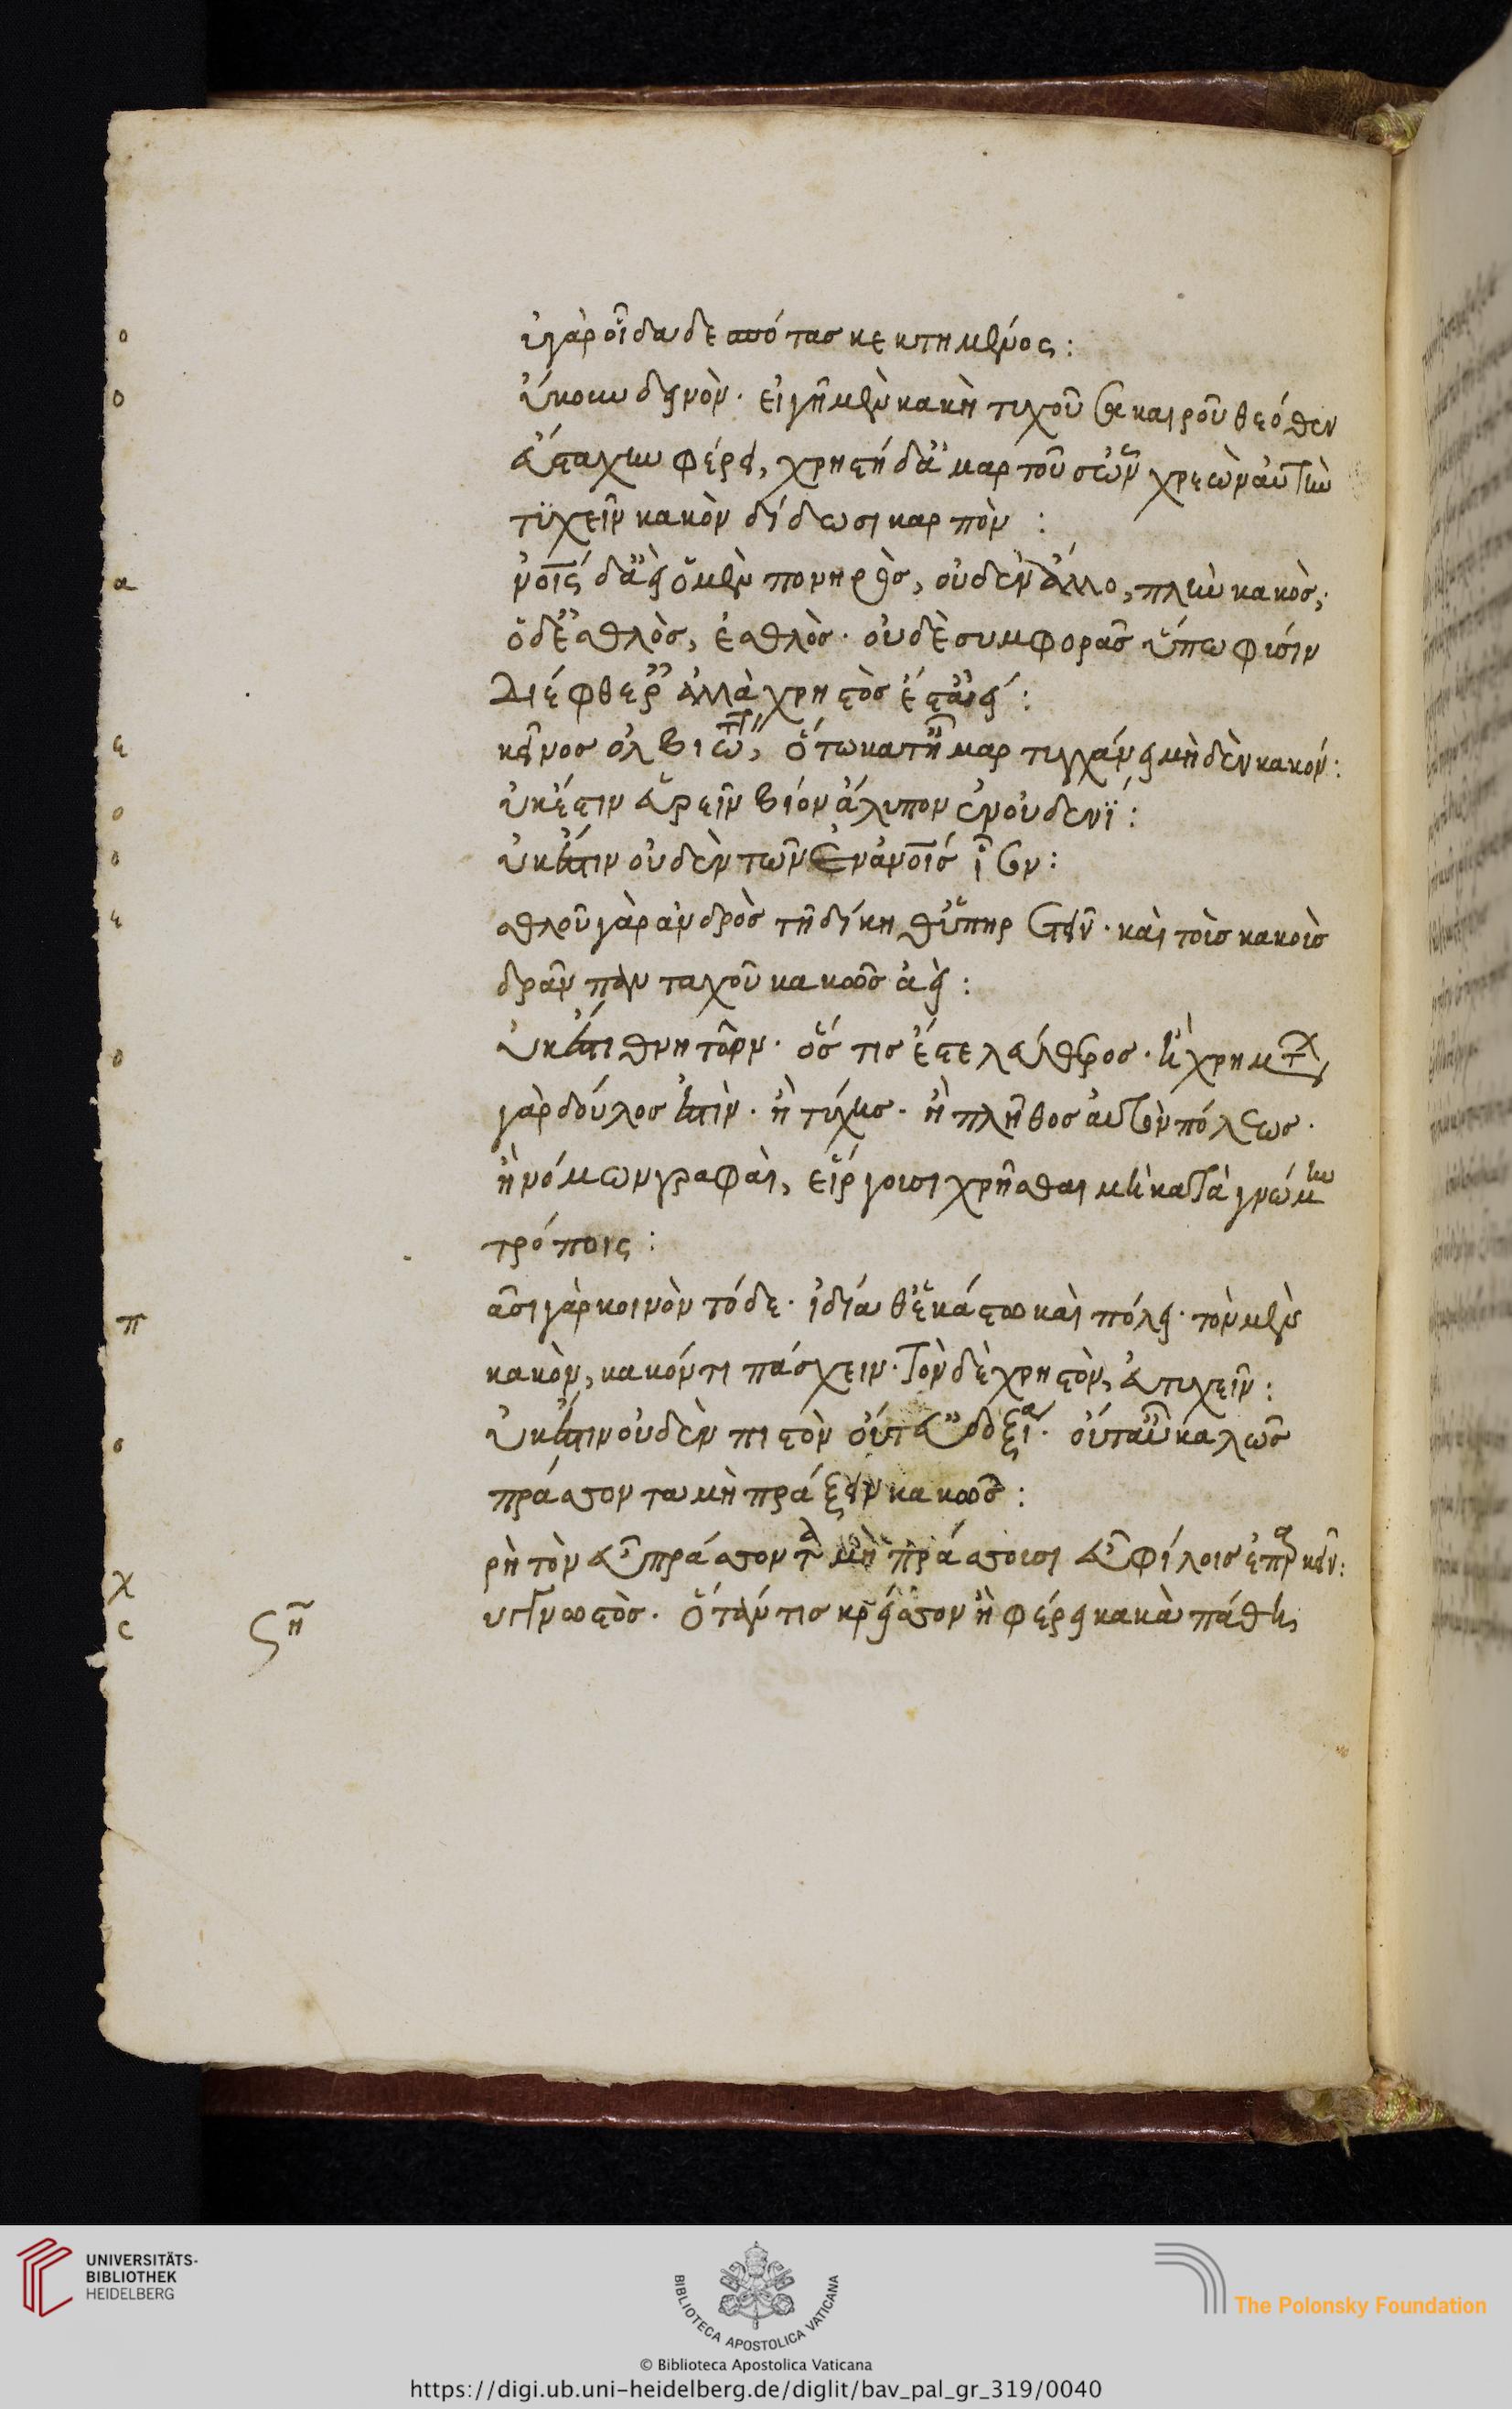 ο ὐ γὰρ οἶδα δεσπότας κεκτημένος:
ο ὔκουν δεινὸν· εἰ γῆ μὲν κακὴ τυχοῦσα καιροῦ θεόθεν
εὖ στάχυν φέρει, χρηστὴ δ' ἁμαρτοῦσ' ὧν χρεὼν αὐτὴν
τϋχεῖν κακὸν δίδωσι καρπὸν :
α νοις δ' ἀεὶ ὁ μὲν πονηρὸς, οὐδὲν ἄλλο, πλὴν κακὸς,
ὁ δ' ἐσθλὸς, ἐσθλὸς· οὐδὲ συμφορᾶς ὕπω φύσιν
διέφθειρ' ἀλλὰ χρηστὸς ἔστ' ἀεί:
ε κεῖνος ὀλβιώτατ, ὅτω κατ' ἦμαρ τυγχάνει μηδὲν κακόν:
ο ὐκ ἔστιν εὑρεῖν βίον ἄλυπον ἐν οὐδενΐ:
ο ὐκ ἔστιν οὐδὲν τῶν ἐν ἀνοις ἶσον:
ε σθλοῦ γὰρ ἀνδρὸς τῆ δίκη θ' ὑπηρετεῖν· καὶ τοὺς κακοὺς
δρᾶν πανταχοῦ κακῶς ἀεί:
ο ὐκ ἔστι θνητῶν· ὅς τις ἔστ' ἐλεύθερος· ἢ χρημάτων
γὰρ δοῦλος ἐστὶν· ἢ τύχης· ἢ πλῆθος αὐτὸν πόλεως·
ἢ νόμων γραφαὶ, εἴργουσι χρῆσθαι μὴ κατὰ γνώμην
τρόποις:
π ᾶσι γὰρ κοινὸν τόδε· ἰδία θ' ἑκάστω καὶ πόλει· τὸν μὲν
κακὸν, κακόν τι πάσχειν· τὸν δὲ χρηστὸν, εὐτυχεῖν:
ο ὐκ ἔστιν οὐδὲν πιστὸν οὔτ' εὐδοξία· οὔτ' αὖ καλῶς
πράσσοντα μὴ πράξειν κακῶς:
χ ρὴ τὸν εὖ πράσσοντα μὴ πράσσουσι εὖ φίλοις ἐπαρκεῖν:
ς ση υγγνωστὸς· ὅταν τις κρείσσον' ἢ φέρει κακὰ πάθη,
UNIVERSITÄTS-
BIBLIOTHEK
HEIDELBERG
BIBLIOTECA APOSTOLICA VATICANA
© Biblioteca Apostolica Vaticana
The Polonsky Foundation
https://digi.ub.uni-heidelberg.de/diglit/bav_pal_gr_319/0040